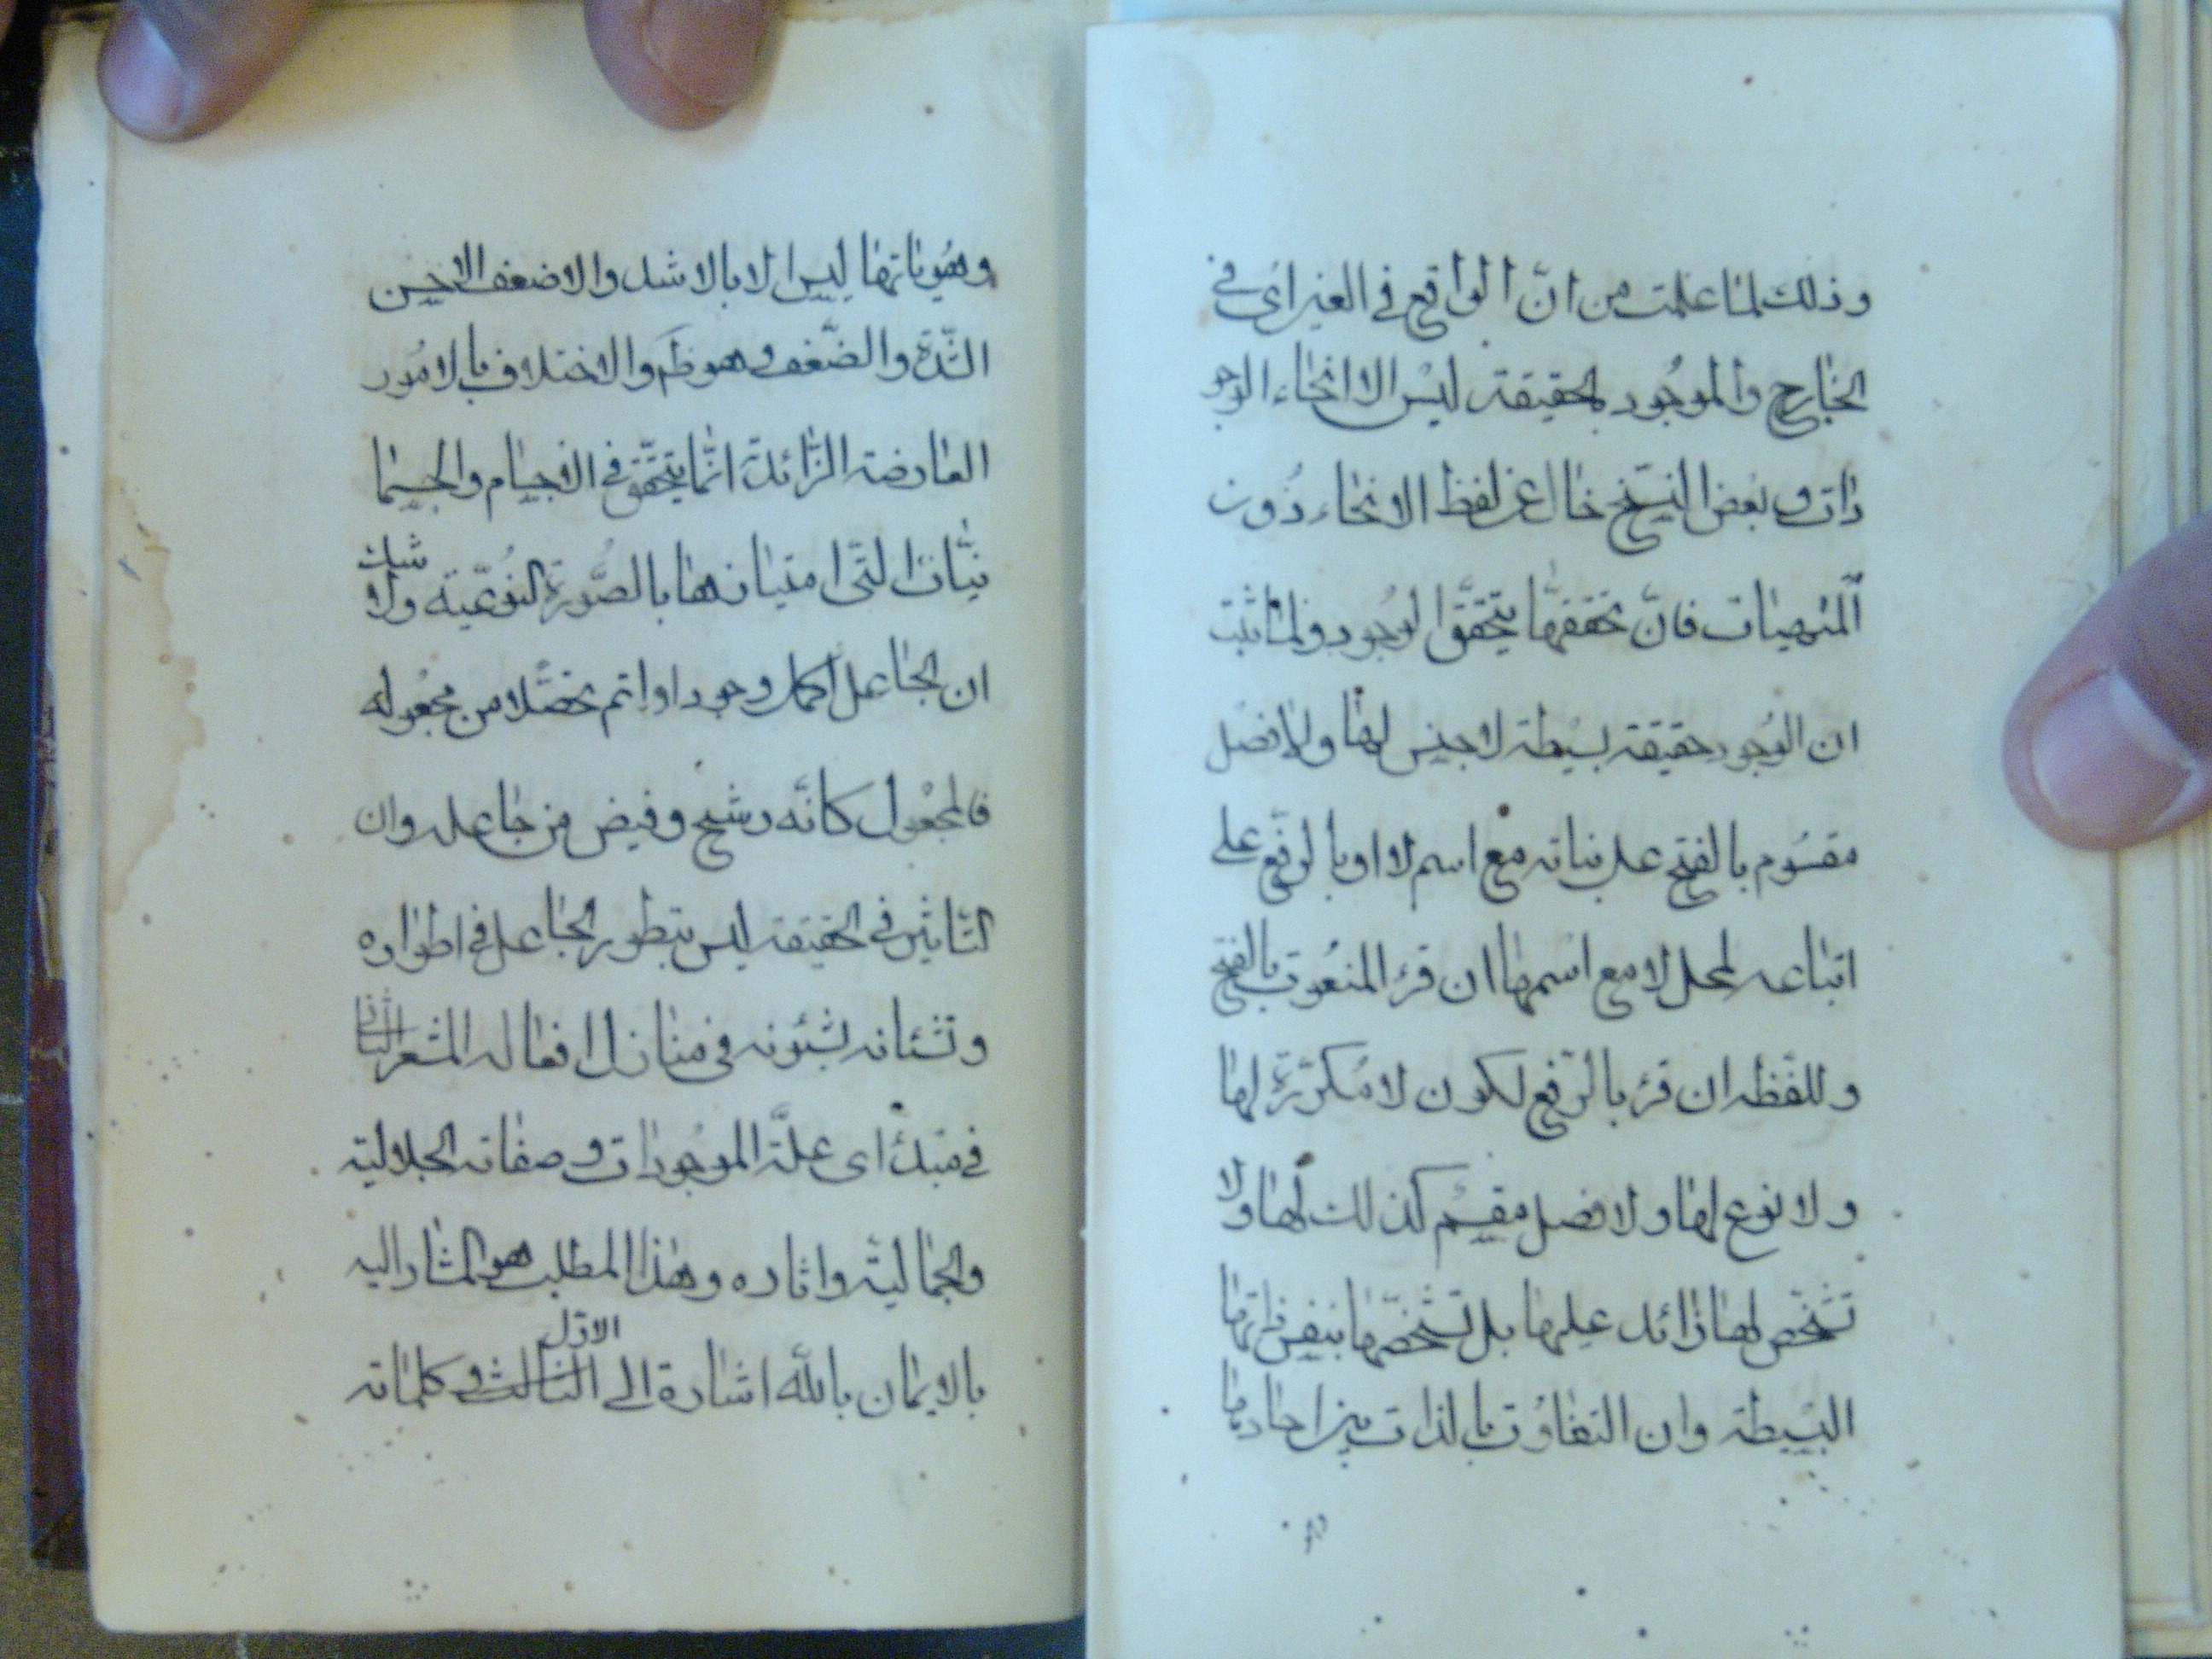 وذلك لما علمت من انّ الواقع في العين اى في
الخارج والموجود بالحقيقة ليس الا انحاء الوجو
دات و بعض النسخ خال عن لفظ الانحاء دون
المهيات فانّ تحققها بتحقّق الوجود ولما ثبت
ان الوجود حقيقة بسيطة لا جنس لها ولا فصل
مقسوم بالفتح على بنائه مع اسم لا او بالرفع على
اتباعه لمحل لا مع اسمها ان قرء المنعوت بالفتح
وللفظه ان قرء بالرّفع لكون لا مكرّرة لها
ولا نوع لها ولا فصل مقسّم كذلك لها ولا
تشخّص لها زائد عليها بل تشخّصها بنفس ذاتها
البسيطة وان التفاوت بالذات بين احادها
وهويّاتها ليس الا بالاشد والاضعف
الشّدة والضّعف وهو ظم والاختلاف بالامور
العارضة الزّائدة انّما يتحقّق في الاجسام والجسما
نيّات التى امتيازها بالصّورة النوعيّة ولا شك
ان الجاعل اكمل وجودا واتم تحصّلا من مجعوله
فالمجعول كانّه رشح وفيض من جاعله وان
التّاثير في الحقيقة ليس بتطور الجاعل في اطواره
وتشانه بشئونه في منازل افعاله المشعر
في مبدء اى علّة الموجودات وصفاته الجلالية
والجمالية واثاره وهذا المطلب هو المشار اليه
بالايمان بالله اشارة الى الثالث الاوّل وكلماته